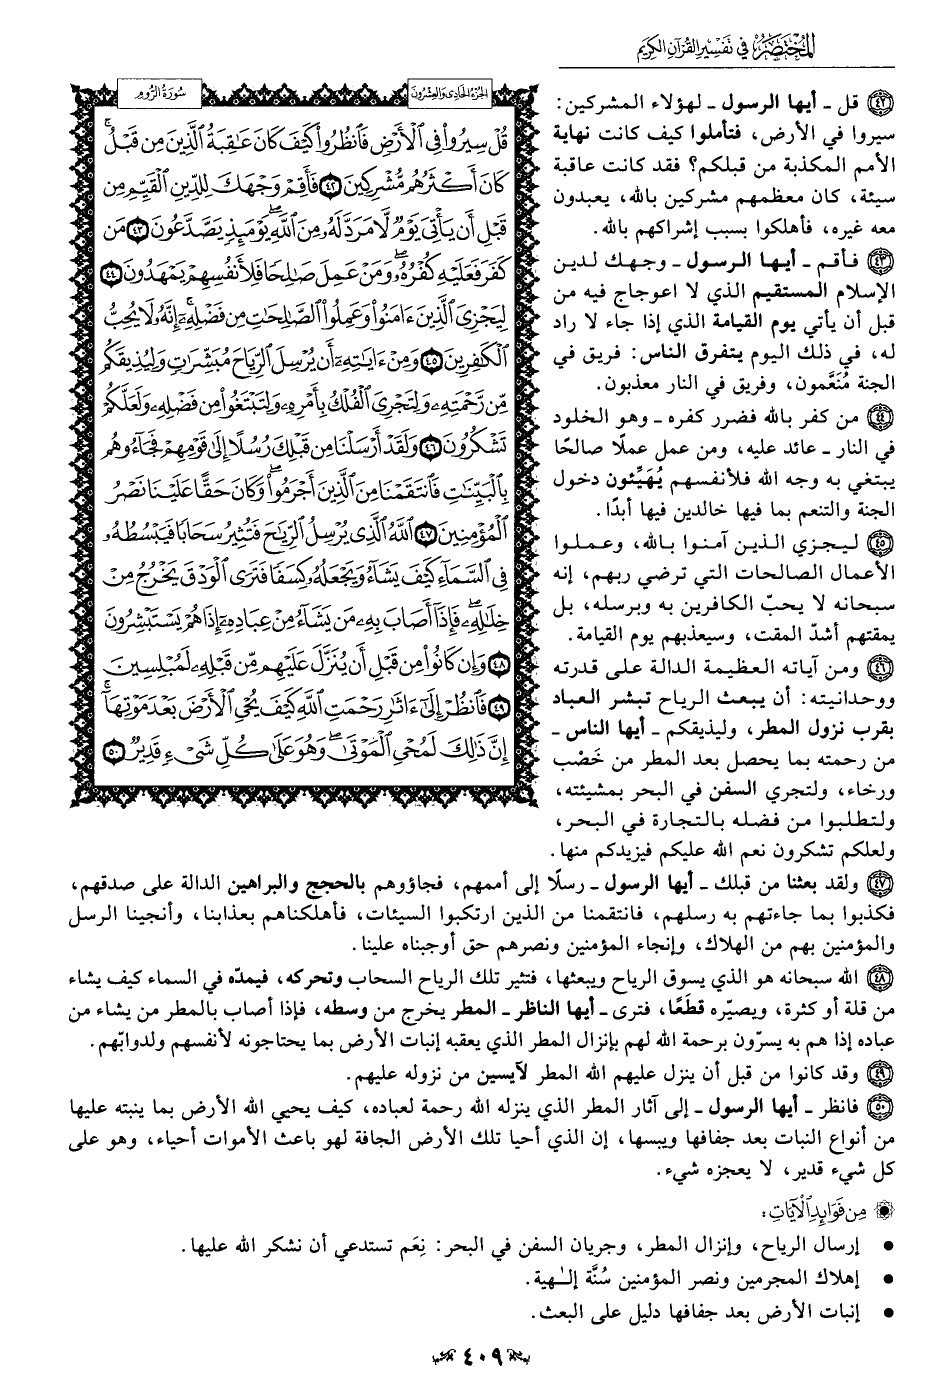 المختصر في تفسير القرآن الكريم
سُورَةُ الرُّومِ
الجزء الحادي والعشرون
قُلْ سِيرُوا۟ فِى ٱلْأَرْضِ فَٱنظُرُوا۟ كَيْفَ كَانَ عَٰقِبَةُ ٱلَّذِينَ مِن قَبْلُ ۚ
كَانَ أَكْثَرُهُم مُّشْرِكِينَ ٤٢ فَأَقِمْ وَجْهَكَ لِلدِّينِ ٱلْقَيِّمِ مِن
قَبْلِ أَن يَأْتِىَ يَوْمٌ لَّا مَرَدَّ لَهُۥ مِنَ ٱللَّهِ ۖ يَوْمَئِذٍ يَصَّدَّعُونَ ٤٣ مَن
كَفَرَ فَعَلَيْهِ كُفْرُهُۥ ۖ وَمَنْ عَمِلَ صَٰلِحًا فَلِأَنفُسِهِمْ يَمْهَدُونَ ٤٤
لِيَجْزِىَ ٱلَّذِينَ ءَامَنُوا۟ وَعَمِلُوا۟ ٱلصَّٰلِحَٰتِ مِن فَضْلِهِۦٓ ۚ إِنَّهُۥ لَا يُحِبُّ
ٱلْكَٰفِرِينَ ٤٥ وَمِنْ ءَايَٰتِهِۦٓ أَن يُرْسِلَ ٱلرِّيَاحَ مُبَشِّرَٰتٍ وَلِيُذِيقَكُم
مِّن رَّحْمَتِهِۦ وَلِتَجْرِىَ ٱلْفُلْكُ بِأَمْرِهِۦ وَلِتَبْتَغُوا۟ مِن فَضْلِهِۦ وَلَعَلَّكُمْ
تَشْكُرُونَ ٤٦ وَلَقَدْ أَرْسَلْنَا مِن قَبْلِكَ رُسُلًا إِلَىٰ قَوْمِهِمْ فَجَآءُوهُم
بِٱلْبَيِّنَٰتِ فَٱنتَقَمْنَا مِنَ ٱلَّذِينَ أَجْرَمُوا۟ ۖ وَكَانَ حَقًّا عَلَيْنَا نَصْرُ
ٱلْمُؤْمِنِينَ ٤٧ ٱللَّهُ ٱلَّذِى يُرْسِلُ ٱلرِّيَٰحَ فَتُثِيرُ سَحَابًا فَيَبْسُطُهُۥ
فِى ٱلسَّمَآءِ كَيْفَ يَشَآءُ وَيَجْعَلُهُۥ كِسَفًا فَتَرَى ٱلْوَدْقَ يَخْرُجُ مِنْ
خِلَٰلِهِۦ ۖ فَإِذَآ أَصَابَ بِهِۦ مَن يَشَآءُ مِنْ عِبَادِهِۦٓ إِذَا هُمْ يَسْتَبْشِرُونَ
٤٨ وَإِن كَانُوا۟ مِن قَبْلِ أَن يُنَزَّلَ عَلَيْهِم مِّن قَبْلِهِۦ لَمُبْلِسِينَ
٤٩ فَٱنظُرْ إِلَىٰٓ ءَاثَٰرِ رَحْمَتِ ٱللَّهِ كَيْفَ يُحْىِ ٱلْأَرْضَ بَعْدَ مَوْتِهَآ ۚ
إِنَّ ذَٰلِكَ لَمُحْىِ ٱلْمَوْتَىٰ ۖ وَهُوَ عَلَىٰ كُلِّ شَىْءٍ قَدِيرٌ ٥٠
٤٢ قل - أيها الرسول - لهؤلاء المشركين:
سيروا في الأرض، فتأملوا كيف كانت نهاية
الأمم المكذبة من قبلكم؟ فقد كانت عاقبة
سيئة، كان معظمهم مشركين بالله، يعبدون
معه غيره، فأهلكوا بسبب إشراكهم بالله.
٤٣ فـأقـم - أيـهـا الـرسول - وجـهـك لـديـن
الإسلام المستقيم الذي لا اعوجاج فيه من
قبل أن يأتي يوم القيامة الذي إذا جاء لا راد
له، في ذلك اليوم يتفرق الناس: فريق في
الجنة مُنَعَّمون، وفريق في النار معذبون.
٤٤ من كفر بالله فضرر كفره - وهو الخلود
في النار - عائد عليه، ومن عمل عملًا صالحًا
يبتغي به وجه الله فلأنفسهم يُهَيِّئون دخول
الجنة والتنعم بما فيها خالدين فيها أبدًا.
٤٥ لـيـجـزي الـذيـن آمـنـوا بـالله، وعـمـلـوا
الأعمال الصالحات التي ترضي ربهم، إنه
سبحانه لا يحبّ الكافرين به وبرسله، بل
يمقتهم أشدّ المقت، وسيعذبهم يوم القيامة.
٤٦ ومن آياته العظيمة الدالة على قدرته
ووحدانيته: أن يبعث الرياح تبشر العباد
بقرب نزول المطر، وليذيقكم - أيها الناس -
من رحمته بما يحصل بعد المطر من خَصْب
ورخاء، ولتجري السفن في البحر بمشيئته،
ولـتـطـلـبـوا مـن فـضـلـه بـالـتـجـارة فـي الـبـحـر،
ولعلكم تشكرون نعم الله عليكم فيزيدكم منها.
٤٧ ولقد بعثنا من قبلك - أيها الرسول - رسلًا إلى أممهم، فجاؤوهم بالحجج والبراهين الدالة على صدقهم،
فكذبوا بما جاءتهم به رسلهم، فانتقمنا من الذين ارتكبوا السيئات، فأهلكناهم بعذابنا، وأنجينا الرسل
والمؤمنين بهم من الهلاك، وإنجاء المؤمنين ونصرهم حق أوجبناه علينا.
٤٨ الله سبحانه هو الذي يسوق الرياح ويبعثها، فتثير تلك الرياح السحاب وتحركه، فيمدّه في السماء كيف يشاء
من قلة أو كثرة، ويصيّره قطَعًا، فترى - أيها الناظر - المطر يخرج من وسطه، فإذا أصاب بالمطر من يشاء من
عباده إذا هم به يسرّون برحمة الله لهم بإنزال المطر الذي يعقبه إنبات الأرض بما يحتاجونه لأنفسهم ولدوابّهم.
٤٩ وقد كانوا من قبل أن ينزل عليهم الله المطر لآيسين من نزوله عليهم.
٥٠ فانظر - أيها الرسول - إلى آثار المطر الذي ينزله الله رحمة لعباده، كيف يحيي الله الأرض بما ينبته عليها
من أنواع النبات بعد جفافها ويبسها، إن الذي أحيا تلك الأرض الجافة لهو باعث الأموات أحياء، وهو على
كل شيء قدير، لا يعجزه شيء.
مِن فَوَائِدِ الآيَاتِ:
• إرسال الرياح، وإنزال المطر، وجريان السفن في البحر: نِعَم تستدعي أن نشكر الله عليها.
• إهلاك المجرمين ونصر المؤمنين سُنَّة إلـٰهية.
• إنبات الأرض بعد جفافها دليل على البعث.
٤٠٩